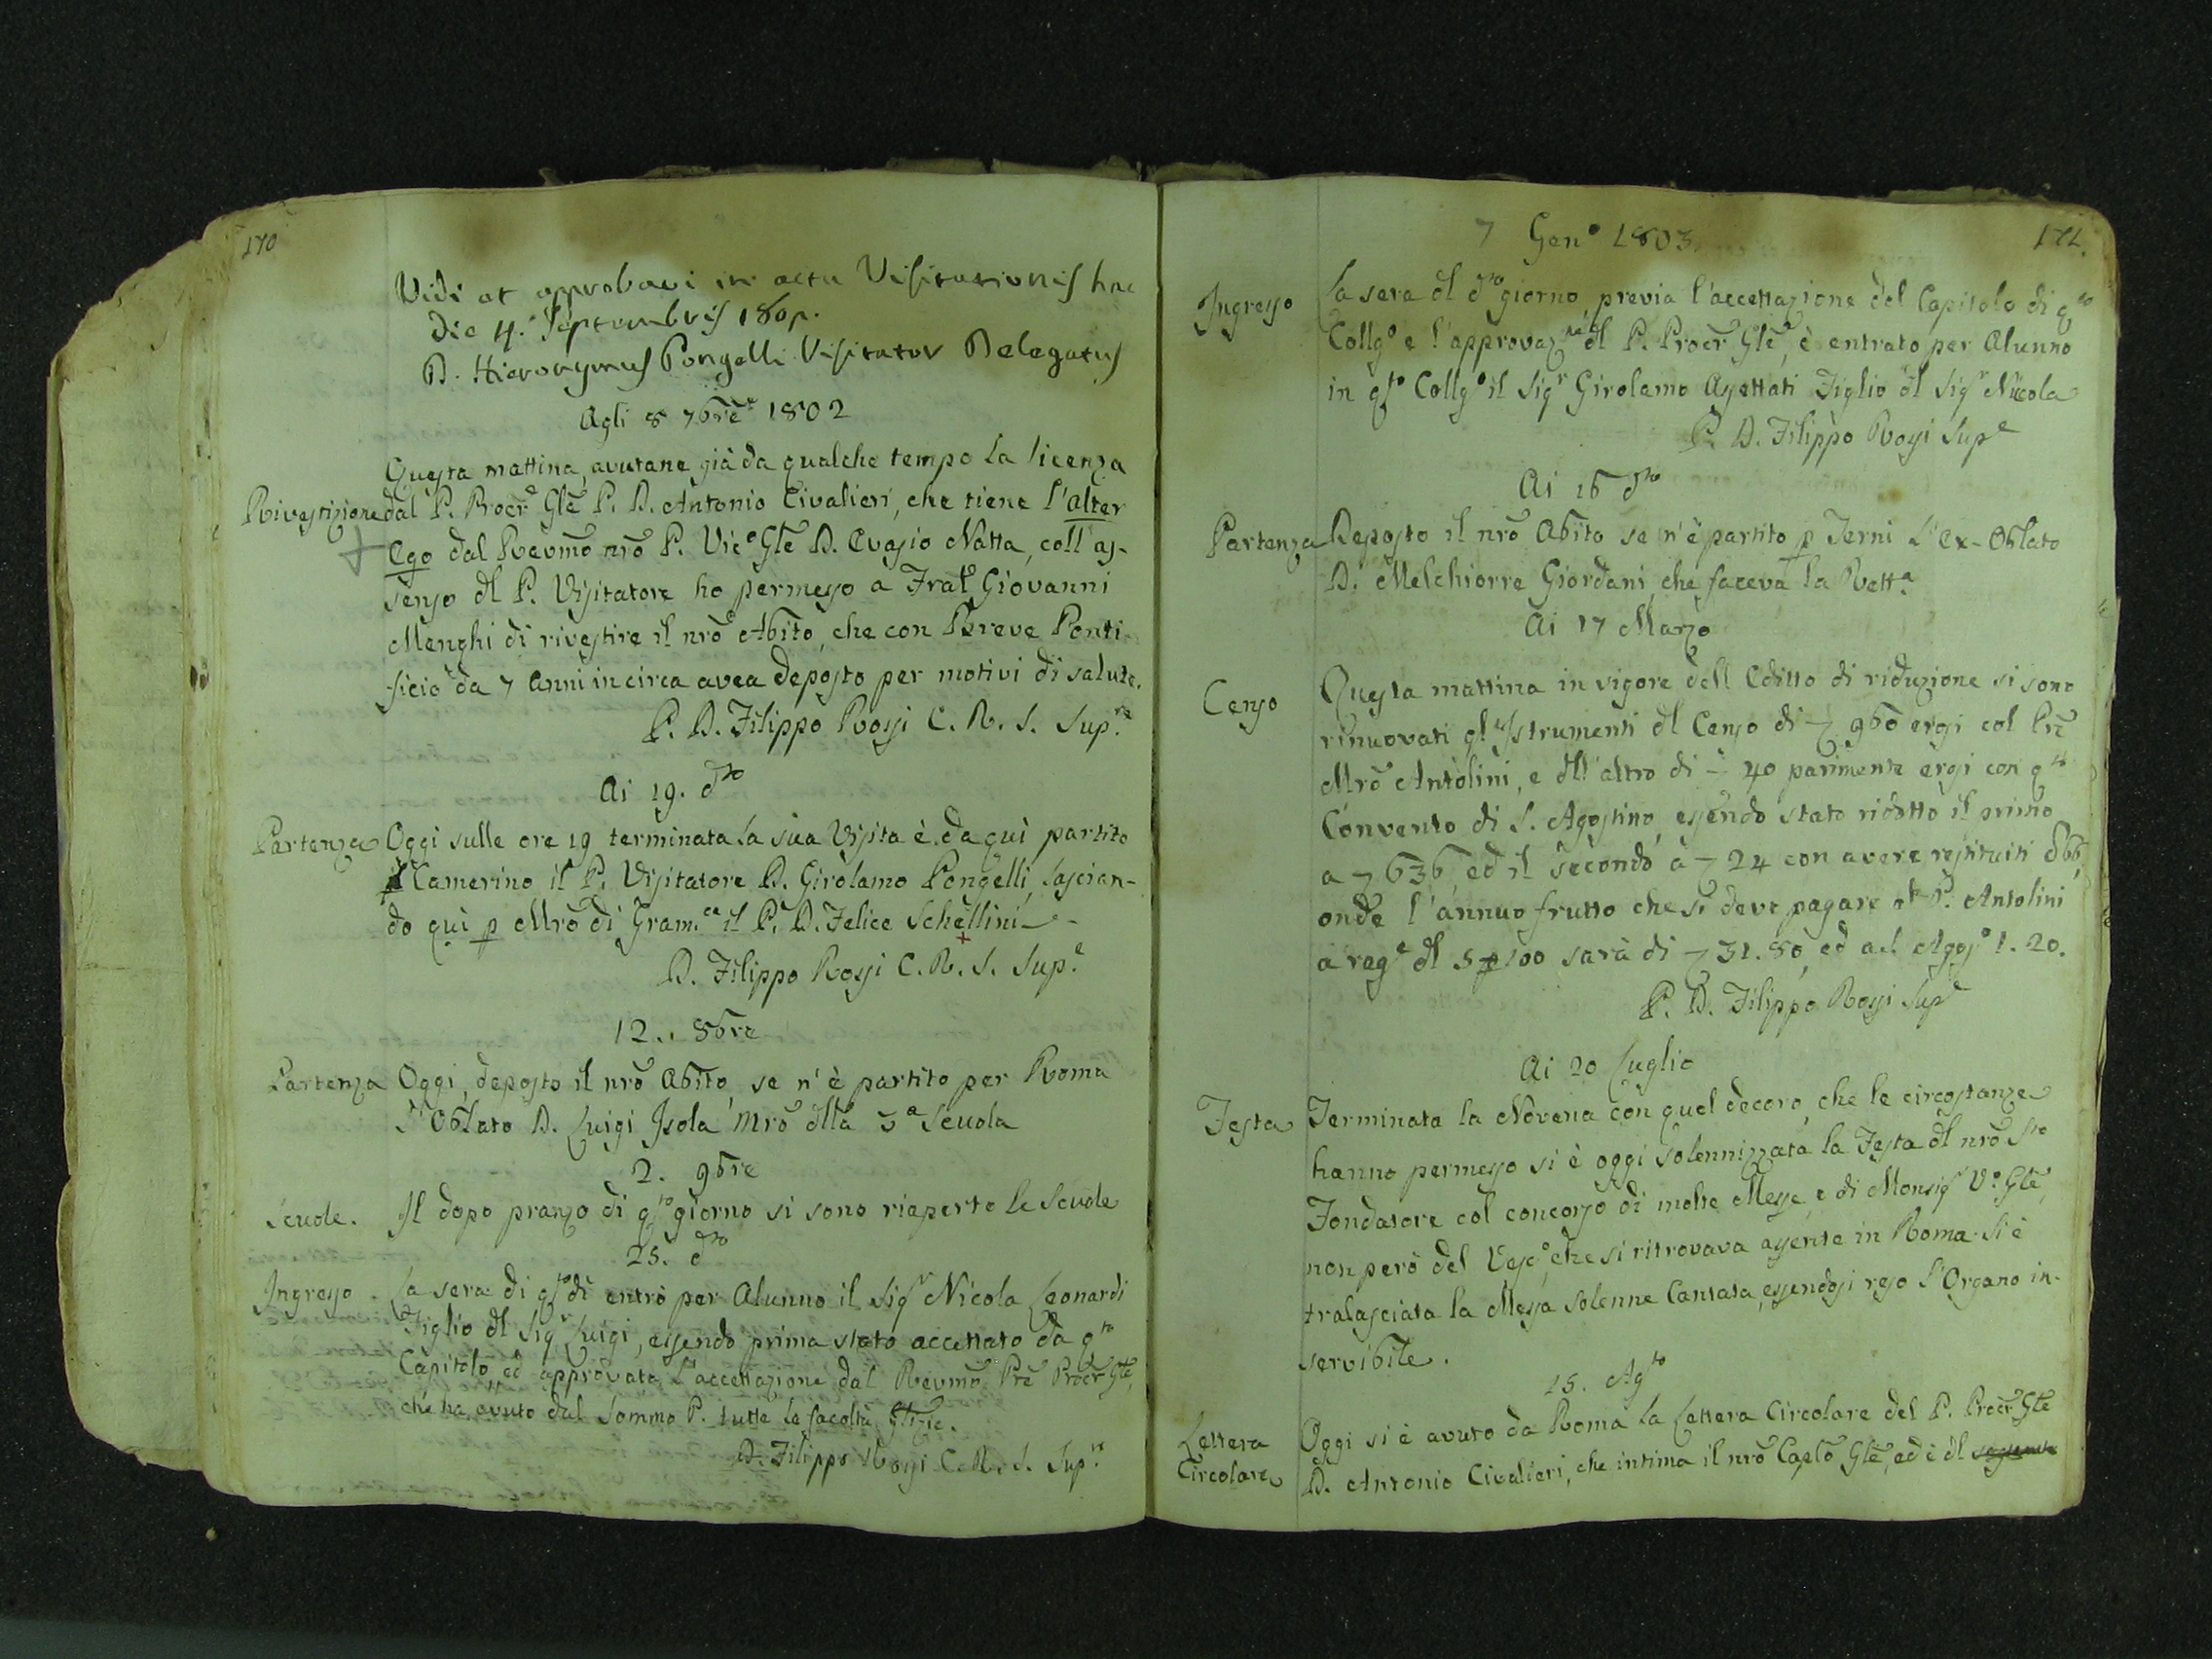 170
Vidi et approbavi in actu Visitationis hac
die 4. Septembris 180
D. Hieronymus Pongelli Visitator Delegatus
Agli 8 7bre 1802
Questa mattina, avutane già da qualche tempo la licenza
Rivestizione dal P. Procr Gle P. D. Antonio Civalieri, che tiene l'alter
Ego dal Revmo nro P. Vico Gle D. Evasio Natta, coll'as-
senso dl P. Visitatore ho permesso a Frat. Giovanni
Menghi di rivestire il nro Abito, che con Breve Ponti-
ficio da 7 Anni incirca avea deposto per motivi di salute.
P. D. Filippo Rossi C. R. S. Sup.re
Ai 19. dto
Partenza Oggi sulle ore 19 terminata la sua Visita è da qui partito
p Camerino il P. Visitatore D. Girolamo Pongelli, lascian-
do qui p Mro di Gram.ca il P. D. Felice Schellini
D. Filippo Rossi C. R. S. Sup.e
12. 8bre
Partenza Oggi, deposto il nro Abito se n'è partito per Roma
l'Oblato D. Luigi Isola Mro dlla 3a Scuola
2. 9bre
Scuole. Il dopo pranzo di qto giorno si sono riaperte le Scuole
25. dto
Ingresso. La sera di qsto dì entrò per Alunno il Sigr Nicola Leonardi
Figlio dl Sigr Luigi, essendo prima stato accettato da qto
Capitolo, ed approvata l'accettazione dal Revmo Pre Procr Gle,
che ha avuto dal Sommo P. tutte le facoltà Glizie.
D. Filippo Rossi C. R. S. Sup.re
7 Geno 1803.
171.
Ingresso La sera dl dto giorno previa l'accettazione del Capitolo di qto
Collgo e l'approvazne dl P. Procr Gle, è entrato per Alunno
in qsto Collgo il Sigr Girolamo Assettati Figlio dl Sigr Nicola
P. D. Filippo Rossi Supe
Ai 16 dto
Partenza Deposto il nro Abito se n'è partito p Terni l'Ex-Oblato
D. Melchiorre Giordani, che faceva la Retta
Ai 17 Marzo
Censo Questa mattina in vigore dell Editto di riduzione si sono
rinuovati gl'Istrumenti dl Censo di 960 ergi col Pre
Mro Antolini, e dll'altro di 40 parimente ergi con qto
Convento di S. Agostino, essendo stato ridotto il primo
a 636, ed il secondo a 24 con avere restituiti
onde l'annuo frutto che si deve pagare al P. Antolini
a rage dl 5 p 100 sarà di 31.80, ed ad Agoso 1.20.
P. D. Filippo Rossi Supe
Ai 20 Luglio
Festa Terminata la Novena con quel decoro, che le circostanze
hanno permesso si è oggi solennizzata la Festa dl nro Sto
Fondatore col concorso di molte Messe, e di Monsigr Vo Gle,
non però del Vesco, che si ritrovava assente in Roma. Si è
tralasciata la Messa solenne Cantata, essendosi reso l'Organo in-
servibile.
15. Agto
Lettera Oggi si è avuto da Roma la Lettera Circolare del P. Procr Gle
Circolare D. Antonio Civalieri, che intima il nro Caplo Gle, ed è dl